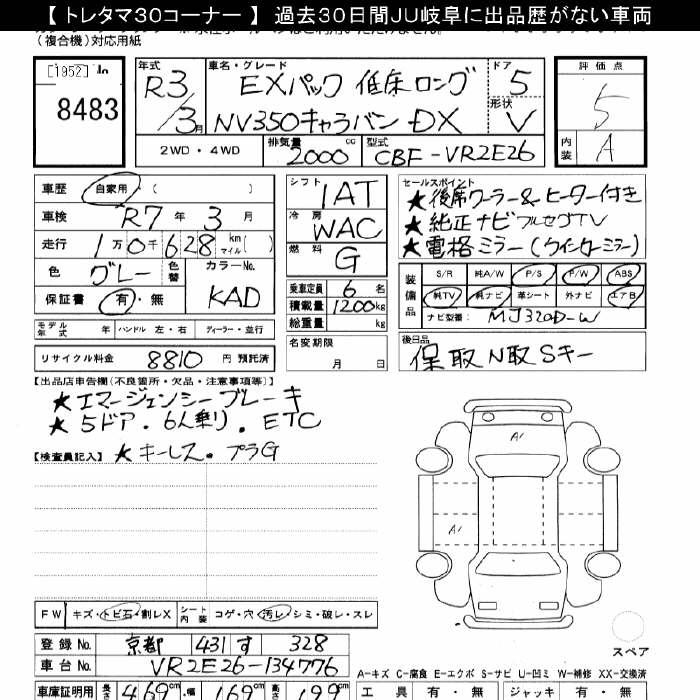 【 トレタマ30コーナー 】 過去30日間JU岐阜に出品歴がない車両
(複合機)対応用紙
[1952]
8483
年式 R3/3月
車名・グレード EXパック 低床ロング
NV350キャラバン DX
ドア 5
形状 V
評価点 5
内装 A
2WD・4WD
排気量 2000cc
型式 CBF-VR2E26
車歴 自家用 ( )
車検 R7年 3月
走行 1万0千628 km マイル ( )
色 グレー 色替
カラーNo. KAD
保証書 有・無
モデル年式 年 ハンドル 左・右 ディーラー・並行
リサイクル料金 8810 円 預託済
シフト IAT
冷房 WAC
燃料 G
乗車定員 6名
積載量 1200kg
総重量 kg
名変期限 月 日
セールスポイント
★後席クーラー&ヒーター付き
★純正ナビフルセグTV
★電格ミラー(ウインカーミラー)
装備品
S/R 純A/W P/S P/W ABS
純TV 純ナビ 革シート 外ナビ エアB
ナビ型番: MJ320D-W
後日品
保取N取Sキー
【出品店申告欄(不良箇所・欠品・注意事項等)】
★エマージェンシーブレーキ
★5ドア・6人乗り・ETC
【検査員記入】 ★キーレス・プラG
A1
A1
FW キズ・トビ石・割レX
シート内装 コゲ・穴・汚レ・シミ・破レ・スレ
スペア
登録No. 京都 431 す 328
車台No. VR2E26-134776
A-キズ C-腐食 E-エクボ S-サビ U-凹ミ W-補修 XX-交換済
車庫証明用 長さ 4.69cm 幅 169cm 高さ 199cm
工具 有・無 ジャッキ 有・無